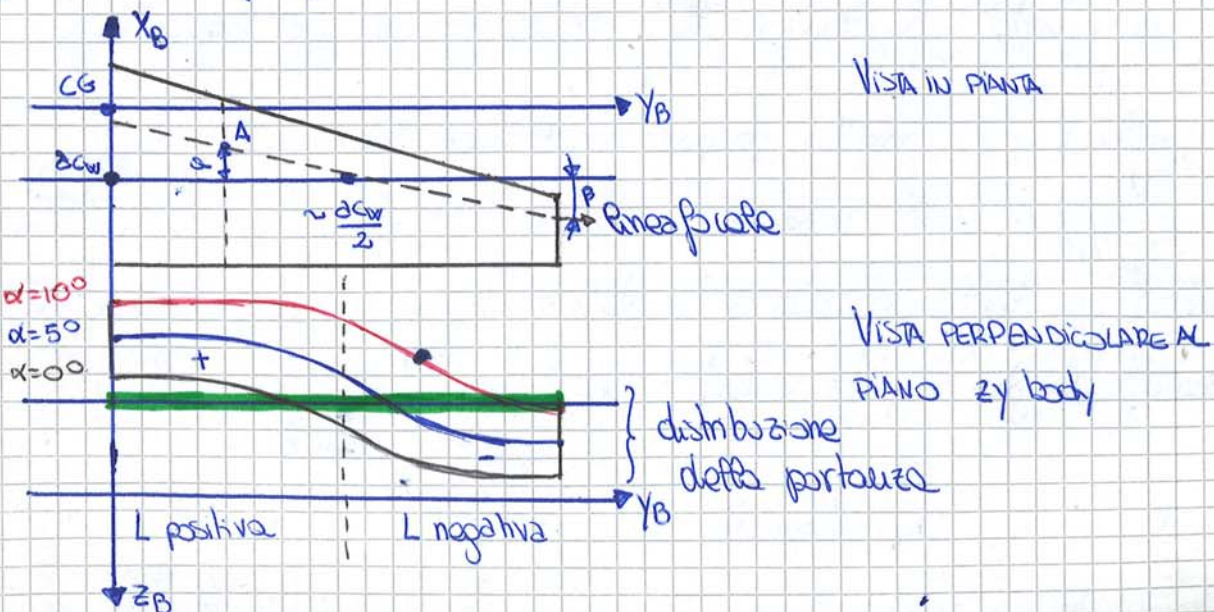 XB
CG
YB
VISTA IN PIANTA
A
a
acw
~ acw/2
β
linea focale
α=10°
α=5°
α=0°
+
-
VISTA PERPENDICOLARE AL
PIANO zy body
distribuzione
della portanza
YB
L positiva
L negativa
ZB